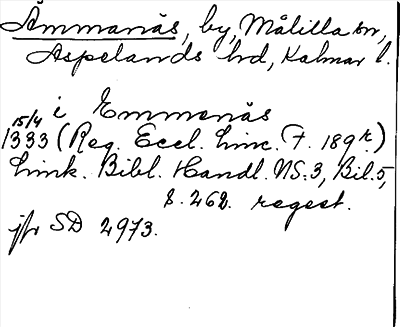 Ämmanäs, by, Målilla sn,
Aspelands hd, Kalmar l.
i Emmenäs
15/4
1333 (Reg. Eccl. Linc. F. 189r)
Link. Bibl. Handl. NS:3, Bil. 5,
s. 262. regest.
jfr SD 2973.